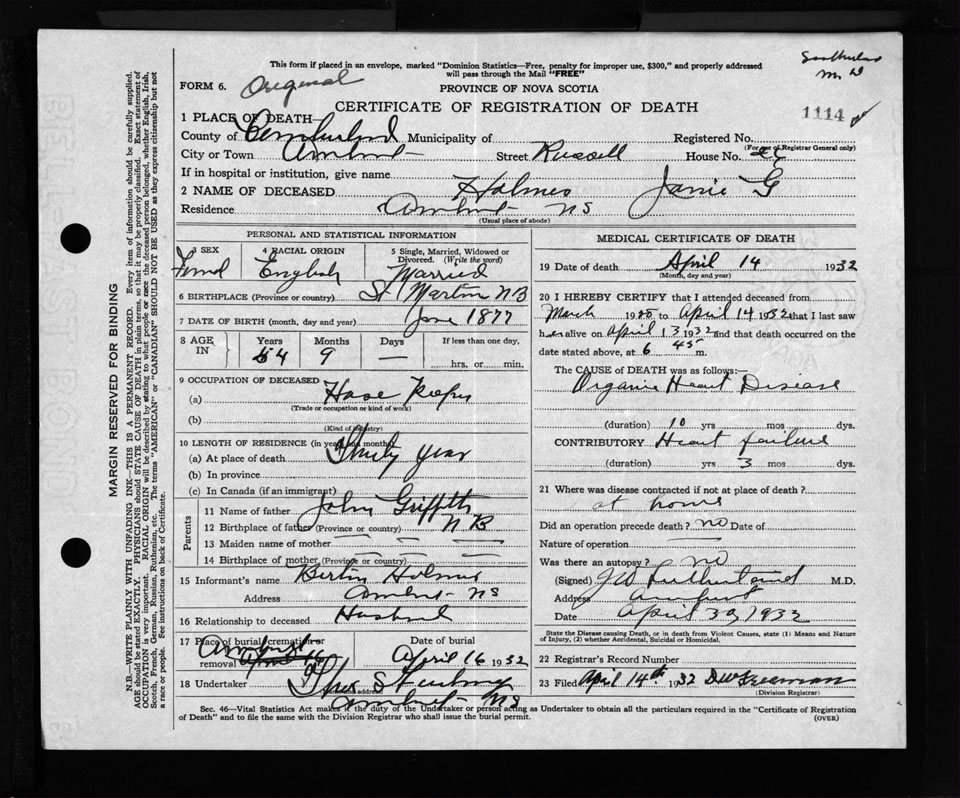 This form if placed in an envelope, marked "Dominion Statistics—Free, penalty for improper use, $300," and properly addressed
will pass through the Mail "FREE"
FORM 6. Original
PROVINCE OF NOVA SCOTIA
CERTIFICATE OF REGISTRATION OF DEATH
1114
1 PLACE OF DEATH—
County of Cumberland Municipality of Registered No.
(For use of Registrar General only)
City or Town Amherst Street Russell House No.
If in hospital or institution, give name
2 NAME OF DECEASED Holmes Janie G
Residence Amherst NS
(Usual place of abode)
PERSONAL AND STATISTICAL INFORMATION
3 SEX 4 RACIAL ORIGIN 5 Single, Married, Widowed or
Divorced. (Write the word)
Femal English Married
6 BIRTHPLACE (Province or country) St Martin NB
7 DATE OF BIRTH (month, day and year) June 1877
8 AGE IN Years Months Days If less than one day,
54 9 — hrs. or min.
9 OCCUPATION OF DECEASED
(a) House Keeper
(Trade or occupation or kind of work)
(b)
(Kind of industry)
10 LENGTH OF RESIDENCE (in years and months)
(a) At place of death Thirty year
(b) In province
(c) In Canada (if an immigrant)
Parents
11 Name of father John Griffith
12 Birthplace of father (Province or country) NB
13 Maiden name of mother — —
14 Birthplace of mother (Province or Country) — —
15 Informant's name Holmes
Address Amherst NS
16 Relationship to deceased Husband
17 Place of burial, cremation or
removal Amherst
Date of burial
April 16 1932
18 Undertaker
Name and address
Amherst NS
MEDICAL CERTIFICATE OF DEATH
19 Date of death April 14 1932
(Month, day and year)
20 I HEREBY CERTIFY that I attended deceased from
March 19 to April 14 1932 that I last saw
her alive on April 13 1932 and that death occurred on the
date stated above, at 6 45 m.
The CAUSE OF DEATH was as follows:—
Organic Heart Disease
(duration) 10 yrs mos. dys.
CONTRIBUTORY Heart failure
(duration) yrs 3 mos dys.
21 Where was disease contracted if not at place of death?
at home
Did an operation precede death? no Date of
Nature of operation
Was there an autopsy? no
(Signed) Rutherland M.D.
Address Amherst
Date April 1932
State the Disease causing Death, or in death from Violent Causes, state (1) Means and Nature
of Injury, (2) whether Accidental, Suicidal or Homicidal.
22 Registrar's Record Number
23 Filed April 14th 1932 Freeman
(Division Registrar)
Sec. 46—Vital Statistics Act makes it the duty of the Undertaker or person acting as Undertaker to obtain all the particulars required in the "Certificate of Registration
of Death" and to file the same with the Division Registrar who shall issue the burial permit.
(OVER)
MARGIN RESERVED FOR BINDING
N.B.—WRITE PLAINLY WITH UNFADING INK—THIS IS A PERMANENT RECORD. Every item of information should be carefully supplied.
AGE should be stated EXACTLY. PHYSICIANS should STATE CAUSE OF DEATH in plain terms, so that it may be properly classified. Exact statement of
OCCUPATION is very important. RACIAL ORIGIN will be described by stating to what people or race the deceased person belonged, whether English, Irish,
Scotch, French, German, Russian, Ruthenian, etc. The terms "AMERICAN" or "CANADIAN" SHOULD NOT BE USED as they express citizenship but not
a race or people. See instructions on back of Certificate.